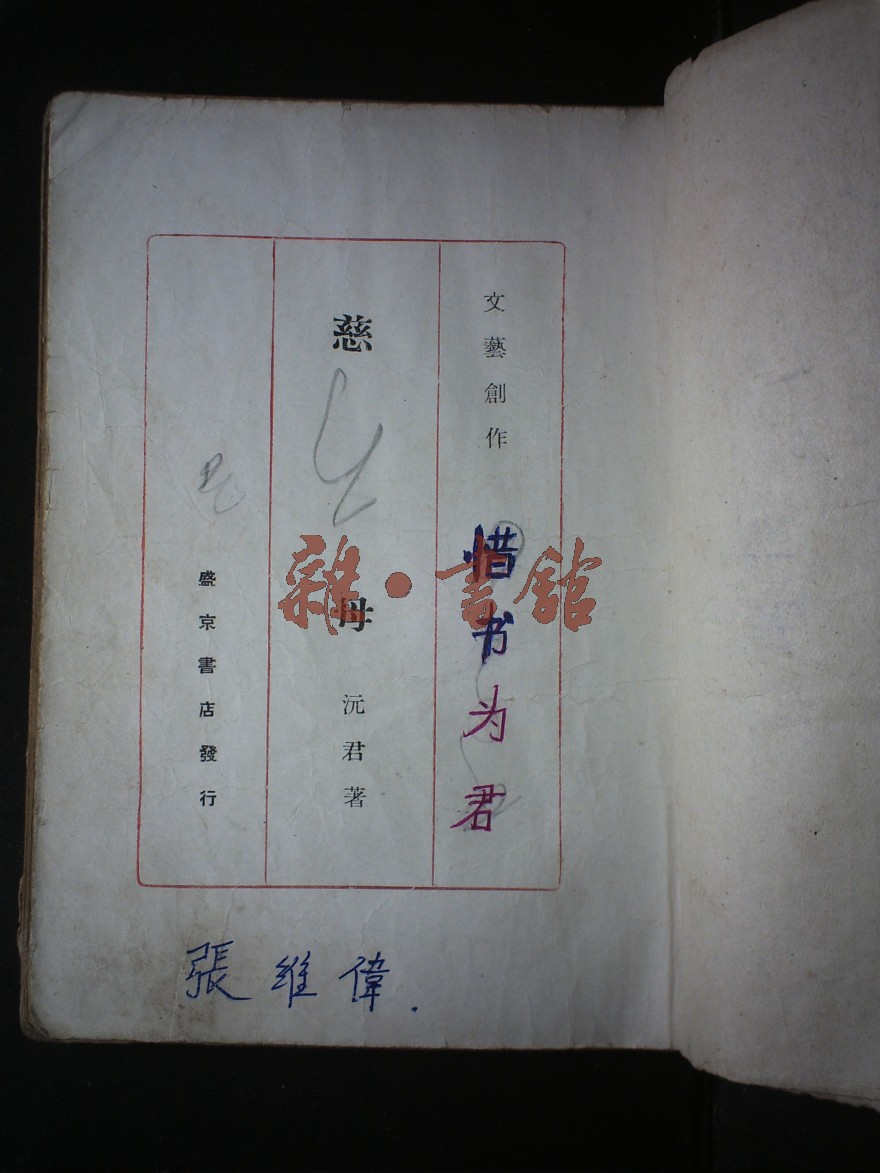 文藝創作
惜书为君
慈母
沅君著
盛京書店發行
張維偉.
雜·書館